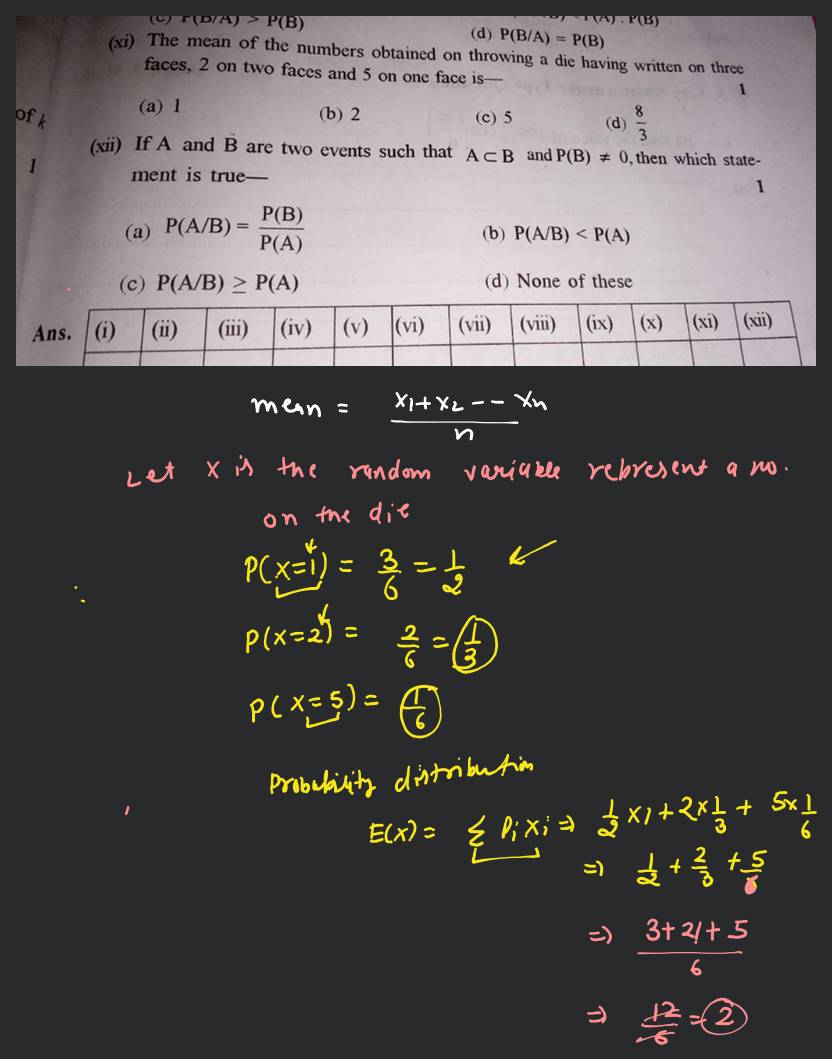 (c) P(B/A) > P(B)
(d) P(B/A) = P(B)
(xi) The mean of the numbers obtained on throwing a die having written on three
faces, 2 on two faces and 5 on one face is—
1
(a) 1 (b) 2 (c) 5 (d) 8/3
of k
(xii) If A and B are two events such that A ⊂ B and P(B) ≠ 0, then which state-
1
ment is true—
1
(a) P(A/B) = P(B)/P(A) (b) P(A/B) < P(A)
(c) P(A/B) ≥ P(A) (d) None of these
Ans. (i) (ii) (iii) (iv) (v) (vi) (vii) (viii) (ix) (x) (xi) (xii)
mean = x1+x2 -- xn / n
Let x is the random variable represent a no.
on the die
P(x=1) = 3/6 = 1/2
P(x=2) = 2/6 = 1/3
P(x=5) = 1/6
Probability distribution
E(x) = Σ Pi xi ⇒ 1/2 x1 + 2x1/3 + 5x1/6
⇒ 1/2 + 2/3 + 5/
⇒ 3+4+5 / 6
⇒ 12/6 = 2